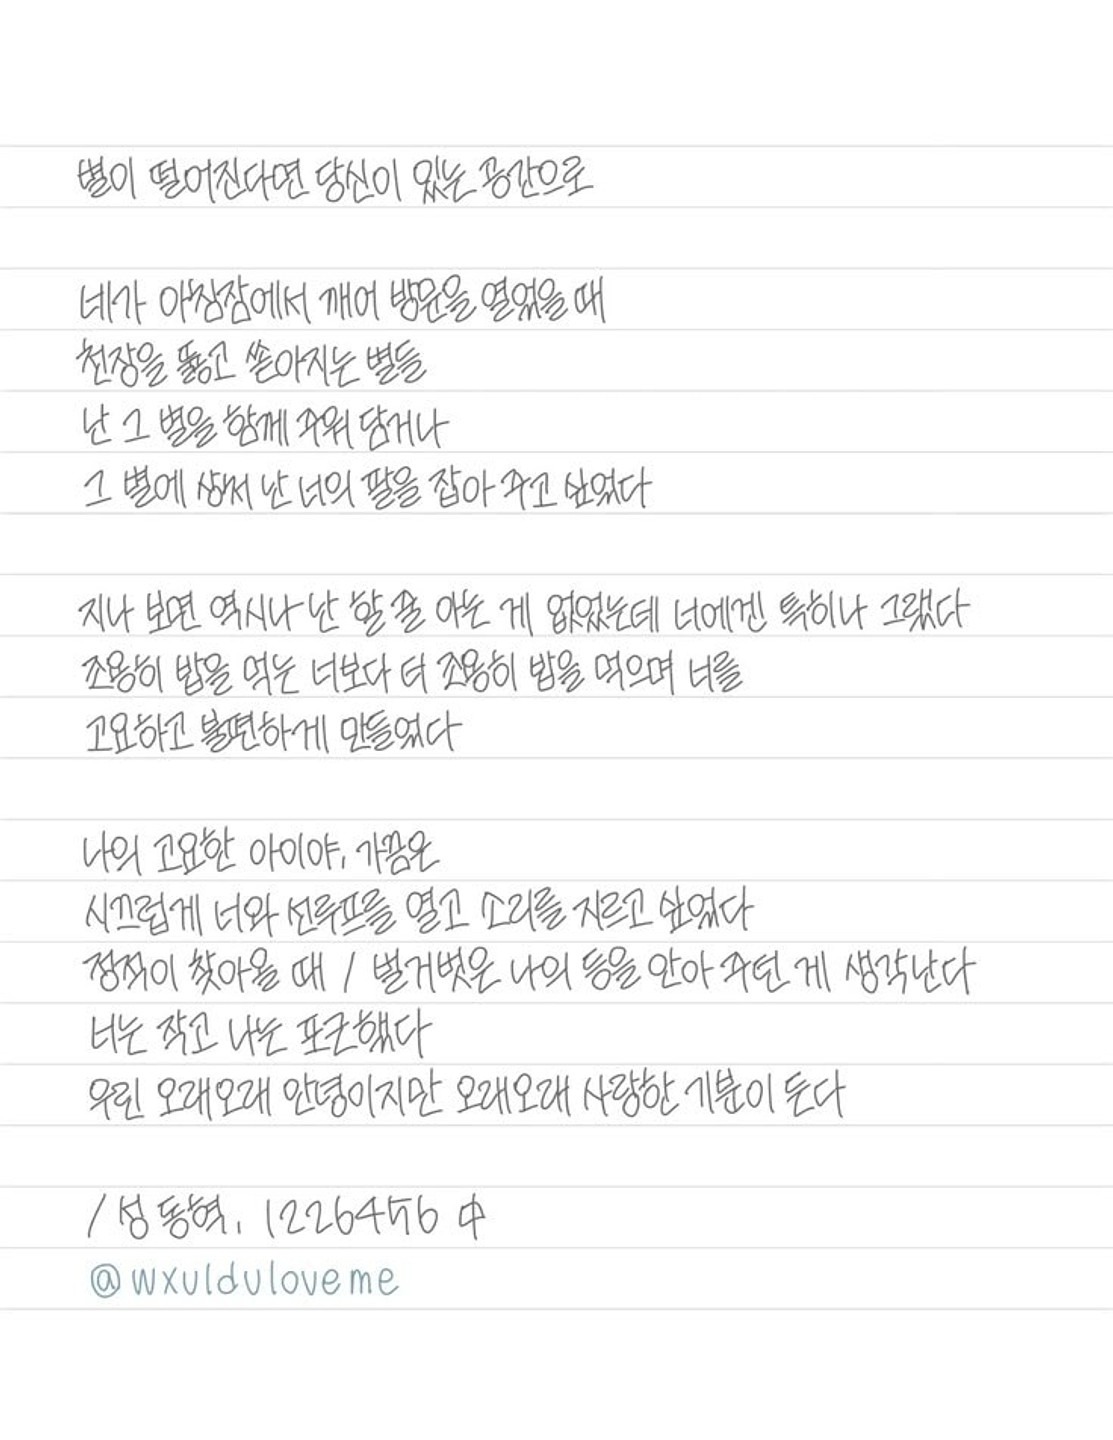 별이 떨어진다면 당신이 있는 공간으로
네가 아침잠에서 깨어 방문을 열었을 때
천장을 뚫고 쏟아지는 별들
난 그 별을 함께 주워 담거나
그 별에 상처 난 너의 팔을 잡아 주고 싶었다
지나 보면 역시나 난 할 줄 아는 게 없었는데 너에겐 특히나 그랬다
조용히 밥을 먹는 너보다 더 조용히 밥을 먹으며 너를
고요하고 불편하게 만들었다
나의 고요한 아이야, 가끔은
시끄럽게 너와 선루프를 열고 소리를 지르고 싶었다
정적이 찾아올 때 / 벌거벗은 나의 등을 안아 주던 게 생각난다
너는 작고 나는 포근했다
우린 오래오래 안녕이지만 오래오래 사랑한 기분이 든다
/ 성동혁, 1226456 中
@wxulduloveme